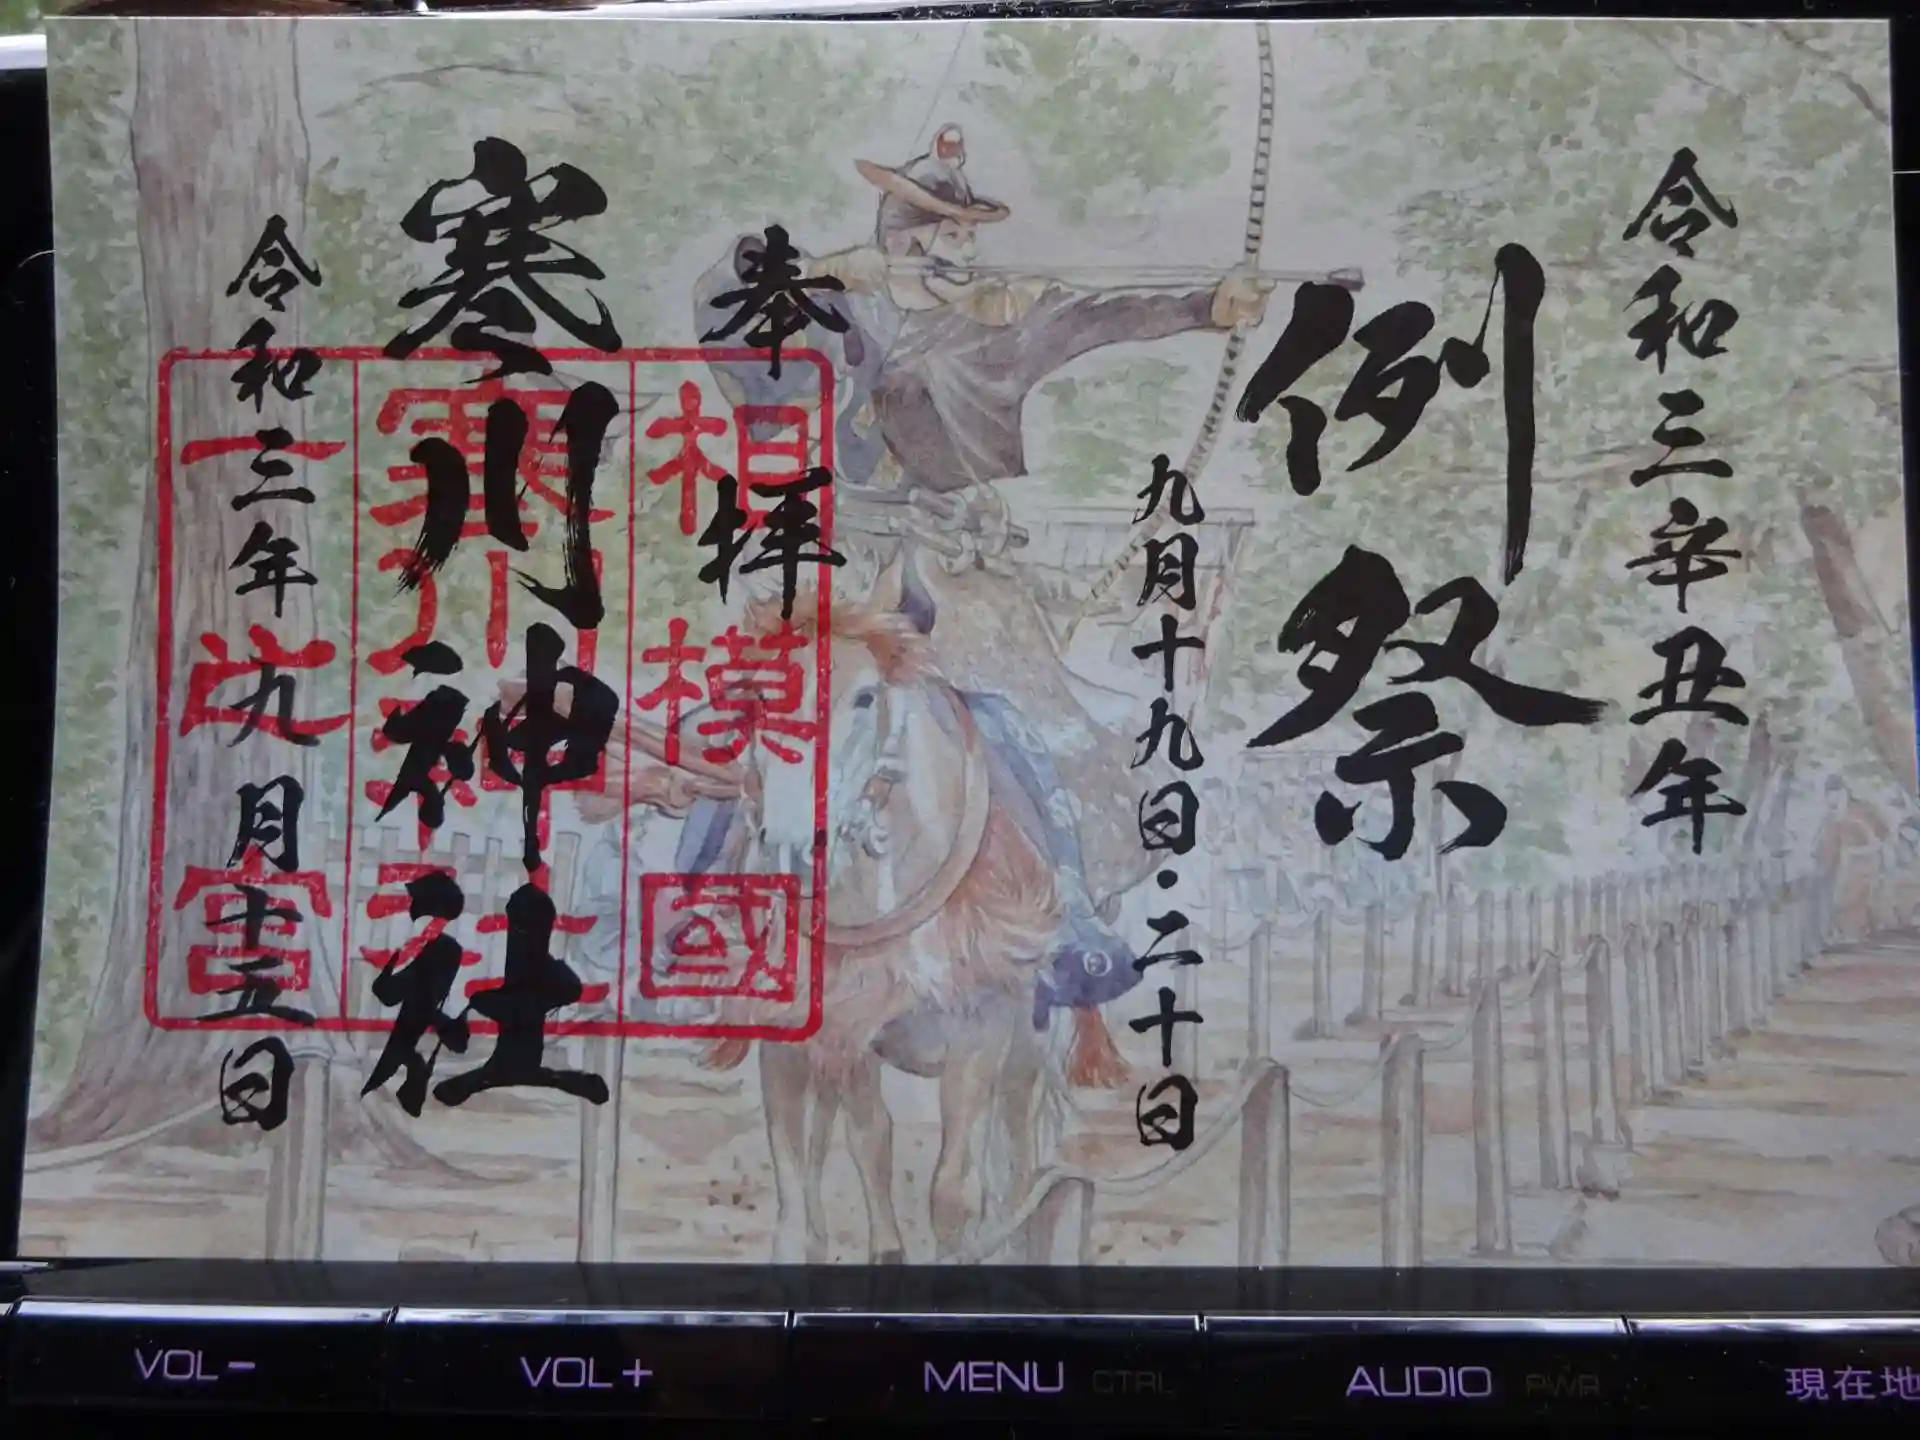 令和三辛丑年
例祭
九月十九日・二十日
奉拝
相模國
寒川神社
寒川神社
一之宮
令和三年九月十五日
VOL－
VOL＋
MENU CTRL
AUDIO PWR
現在地